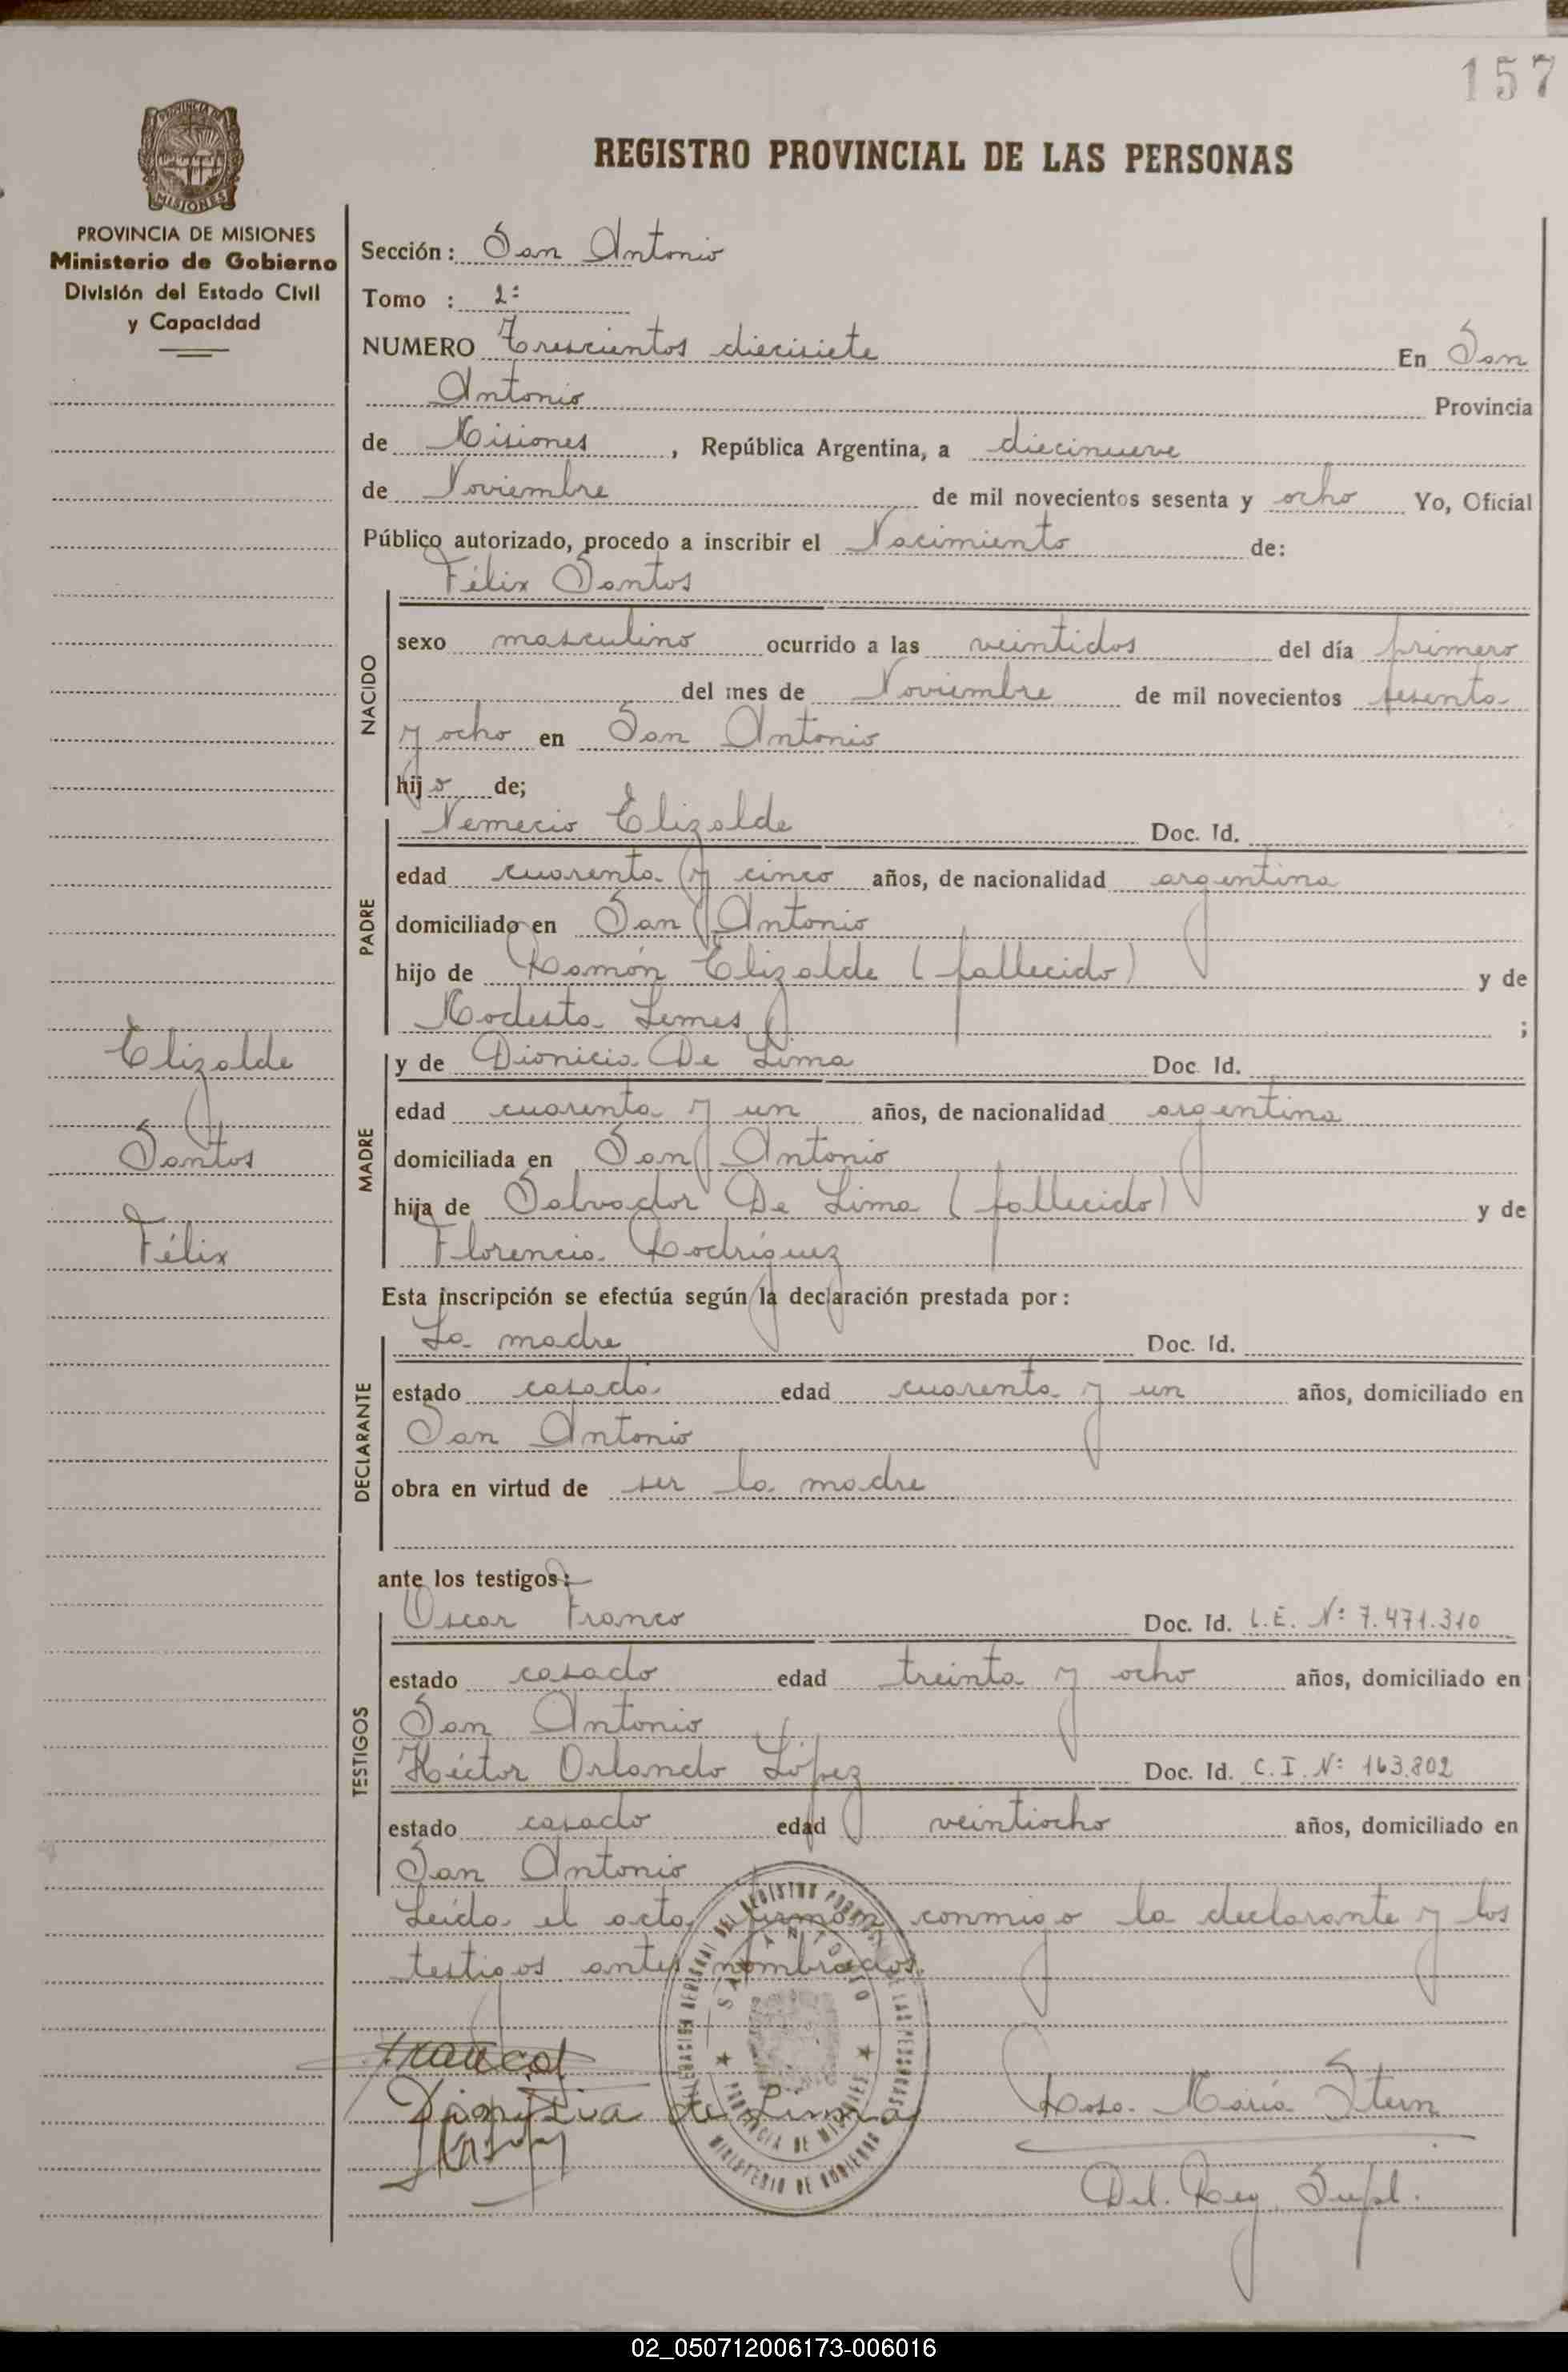 157
PROVINCIA DE MISIONES
Ministerio de Gobierno
División del Estado Civil
y Capacidad
REGISTRO PROVINCIAL DE LAS PERSONAS
Sección: San Antonio
Tomo : 2º
NUMERO Trescientos diecisiete En San
Antonio Provincia
de Misiones, República Argentina, a diecinueve
de Noviembre de mil novecientos sesenta y ocho Yo, Oficial
Público autorizado, procedo a inscribir el Nacimiento de:
Félix Santos
NACIDO
sexo masculino ocurrido a las veintidos del día primero
del mes de Noviembre de mil novecientos sesenta
y ocho en San Antonio
hijo de;
PADRE
Nemecio Elizalde Doc. Id.
edad cuarenta y cinco años, de nacionalidad argentina
domiciliado en San Antonio
hijo de Ramón Elizalde (fallecido) y de
Modesta Lemes ;
Elizalde
Santos
Félix
MADRE
y de Dionicia De Lima Doc. Id.
edad cuarenta y un años, de nacionalidad argentina
domiciliada en San Antonio
hija de Salvador De Lima (fallecido) y de
Florencia Rodríguez
Esta inscripción se efectúa según la declaración prestada por:
DECLARANTE
La madre Doc. Id.
estado casada edad cuarenta y un años, domiciliado en
San Antonio
obra en virtud de ser la madre
ante los testigos:
TESTIGOS
Oscar Franco Doc. Id. L.E. Nº 7.471.310
estado casado edad treinta y ocho años, domiciliado en
San Antonio
Héctor Orlando López Doc. Id. C.I. Nº 163.802
estado casado edad veintiocho años, domiciliado en
San Antonio
Leída el acta, firman conmigo la declarante y los
testigos antes nombrados.
SAN ANTONIO
PROVINCIA DE MISIONES
MINISTERIO DE GOBIERNO
Franco
de Lima
Rosa María Stern
Del. Reg. Supl.
02_050712006173-006016